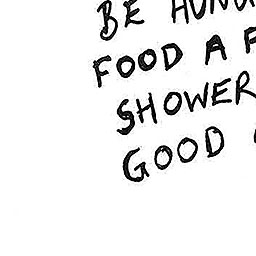 BE
FOOD A
SHOWER
GOOD